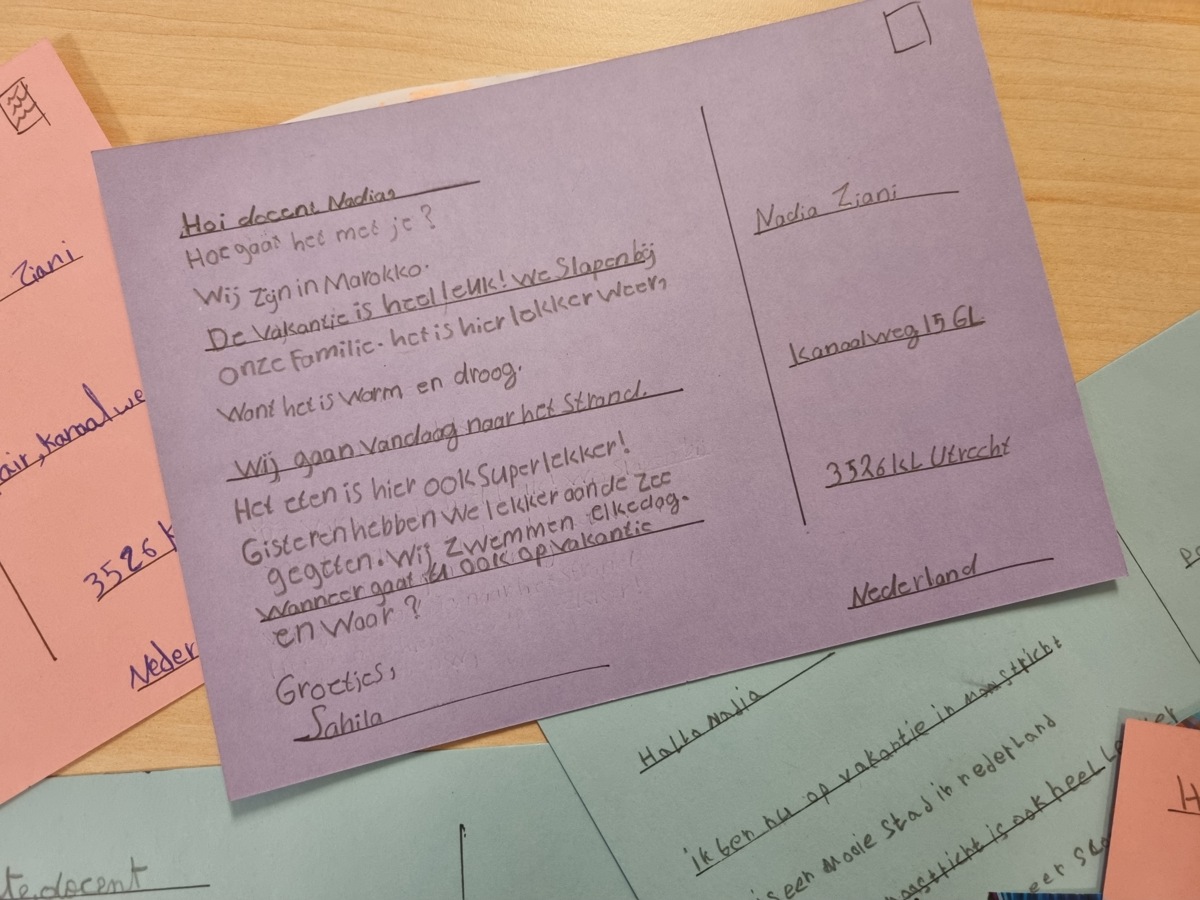 Hoi docent Nadia,
Hoe gaat het met je?
Wij zijn in Marokko.
De vakantie is heel leuk! We Slapen bij
onze Familie. het is hier lekker weer,
Want het is warm en droog.
Wij gaan vandaag naar het Strand.
Het eten is hier ook Super lekker!
Gisteren hebben we lekker aan de zee
gegeten. Wij zwemmen elke dag.
Wanneer gaat u ook op vakantie
en waar?
Groetjes,
Sahila
Nadia Ziani
Kanaalweg 15 GL
3526 KL Utrecht
Nederland
Ziani
3526 K
Neder
Hallo Nadia
ik ben nu op vakantie in maastricht
is een mooie stad in nederland
is ook heel
eer
docent
H